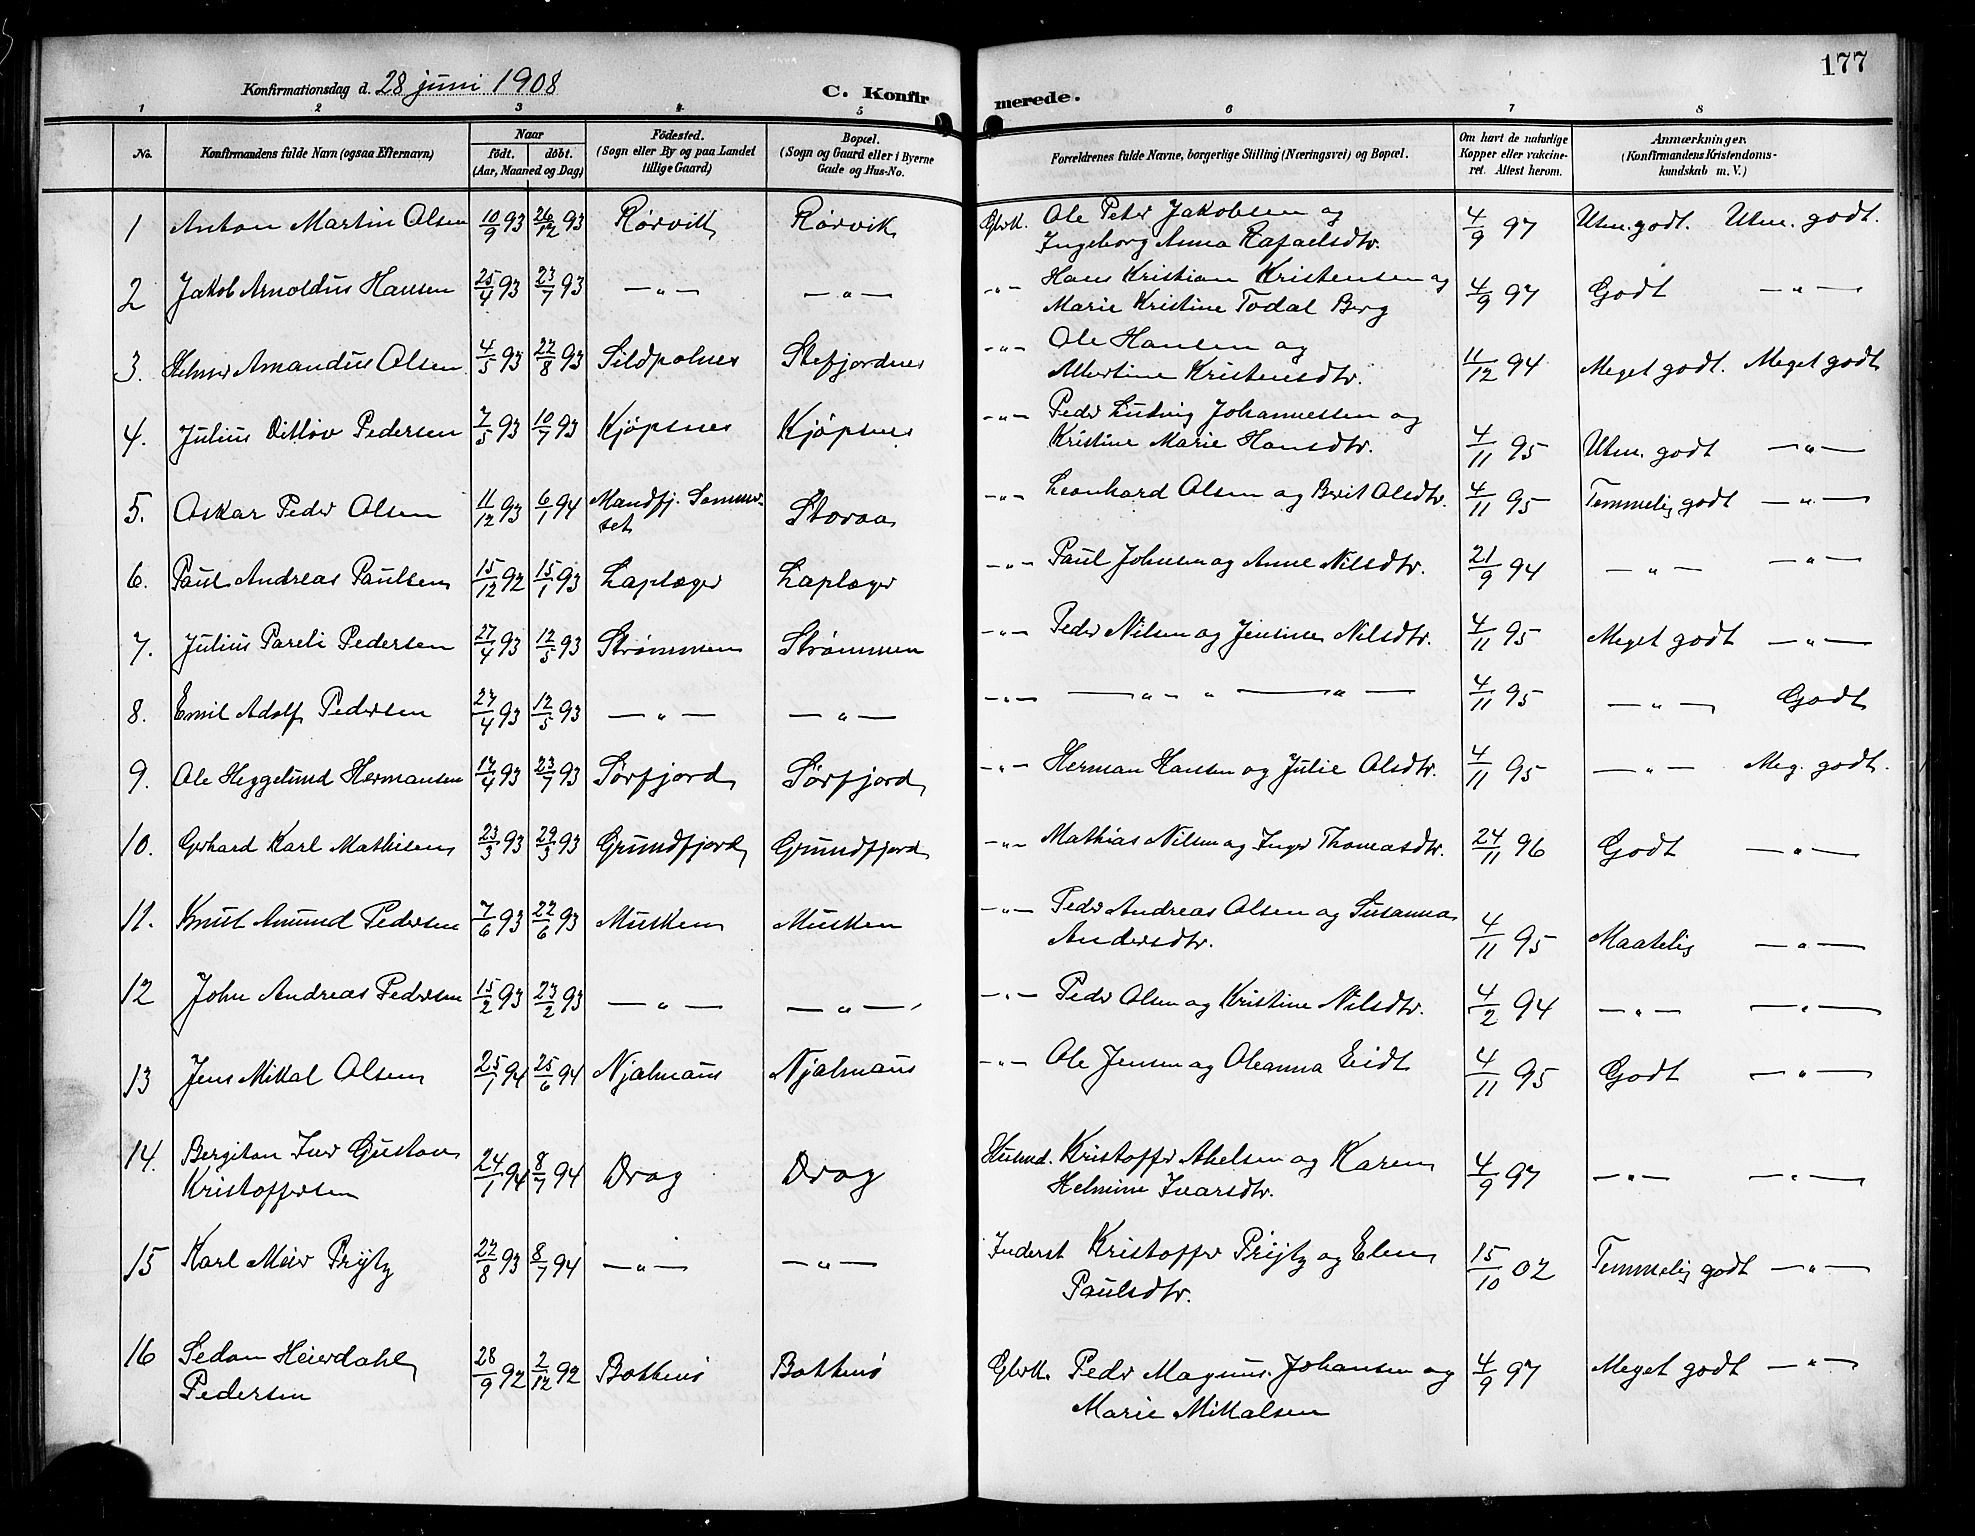 177
Konfirmationsdag d. 28 juni 1908
C. Konfirmerede.
1 2 3 4 5 6 7 8
No. Konfirmandens fulde Navn (ogsaa Efternavn) Naar født. døbt. (Aar, Maaned og Dag) Fødested. (Sogn eller By og paa Landet tillige Gaard) Bopæl. (Sogn og Gaard eller i Byerne Gade og Hus-No. Forældrenes fulde Navne, borgerlige Stilling (Næringsvei) og Bopæl. Om havt de naturlige Kopper eller vakcineret. Attest herom. Anmærkninger. (Konfirmandens Kristendomskundskab m. V.)
1 Anton Martin Olsen 10/9 93 26/12 93 Rørvik Rørvik Gbrk. Ole Peter Jakobsen og Ingeborg Anna Rafaelsdtr. 4/9 97 Utm. godt. Utm. godt.
2 Jakob Arnoldus Hansen 25/4 93 23/7 93 —„— —„— -„- Hans Kristian Kristensen og Marie Kristine Todal Berg 4/9 97 Godt —„—
3. Helmer Amandus Olsen 4/5 93 27/8 93 Sildpolnes Stefjordnes -„- Ole Hansen og Albertine Kristensdtr. 11/12 94 Meget godt. Meget godt
4. Julius Ditløv Pedersen 7/5 93 10/7 93 Kjøpsnes Kjøpsnes -„- Peder Ludvig Johannessen og Kristine Marie Hansdtr. 4/11 95 Utm. godt —„—
5. Oskar Peder Olsen 11/12 93 6/1 94 Mandfj. Sommerset Storaa -„- Leonhard Olsen og Berit Olsdtr. 4/11 95 Temmelig godt —„—
6. Paul Andreas Paulsen 15/12 92 15/1 93 Laplæger Laplæger -„- Paul Johnsen og Anne Nilsdtr. 21/9 94 —„— —„—
7. Julius Pareli Pedersen 27/4 93 12/5 93 Strømmen Strømmen -„- Peder Nilsen og Jensine Nilsdtr. 4/11 95 Meget godt —„—
8. Emil Adolf Pedersen 27/4 93 12/5 93 —„— —„— -„- —„—„—„— 4/11 95 —„— Godt
9. Ole Heggelund Hermansen 17/4 93 23/7 93 Sørfjord Sørfjord -„- Herman Hansen og Julie Olsdtr. 4/11 95 —„— Meg. godt.
10. Gerhard Karl Mathisen 23/3 93 29/3 93 Grundfjord Grundfjord -„- Mathias Nilsen og Inger Thomasdtr. 24/11 96 Godt —„—
11. Knut Amund Pedersen 7/6 93 22/6 93 Musken Musken -„- Peder Andreas Olsen og Susanna Andersdtr. 4/11 95 Maatelig —„—
12 John Andreas Pedersen 15/2 93 23/2 93 —„— —„— -„- Peder Olsen og Kristine Nilsdtr. 4/2 94 —„— —„—
13 Jens Mikal Olsen 25/1 94 25/6 94 Njalmaus Njalmaus -„- Ole Jensen og Oleanna Eidt 4/11 95 Godt —„—
14. Bergiton Iver Gustav Kristoffersen 24/1 94 8/7 94 Drag Drag Husmd. Kristoffer Akelsen og Karen Helmine Ivarsdtr. 4/9 97 —„— —„—
15 Karl Meier Prijtz 27/8 93 8/7 94 —„— —„— Inderst Kristoffer Prijtz og Elen Paulsdtr. 15/10 02 Temmelig godt —„—
16 Sedon Heierdahl Pedersen 28/9 92 2/12 92 Botknes Botknes Gbrk. Peder Magnus Johansen og Marie Mikkalsen 4/9 97 Meget godt —„—